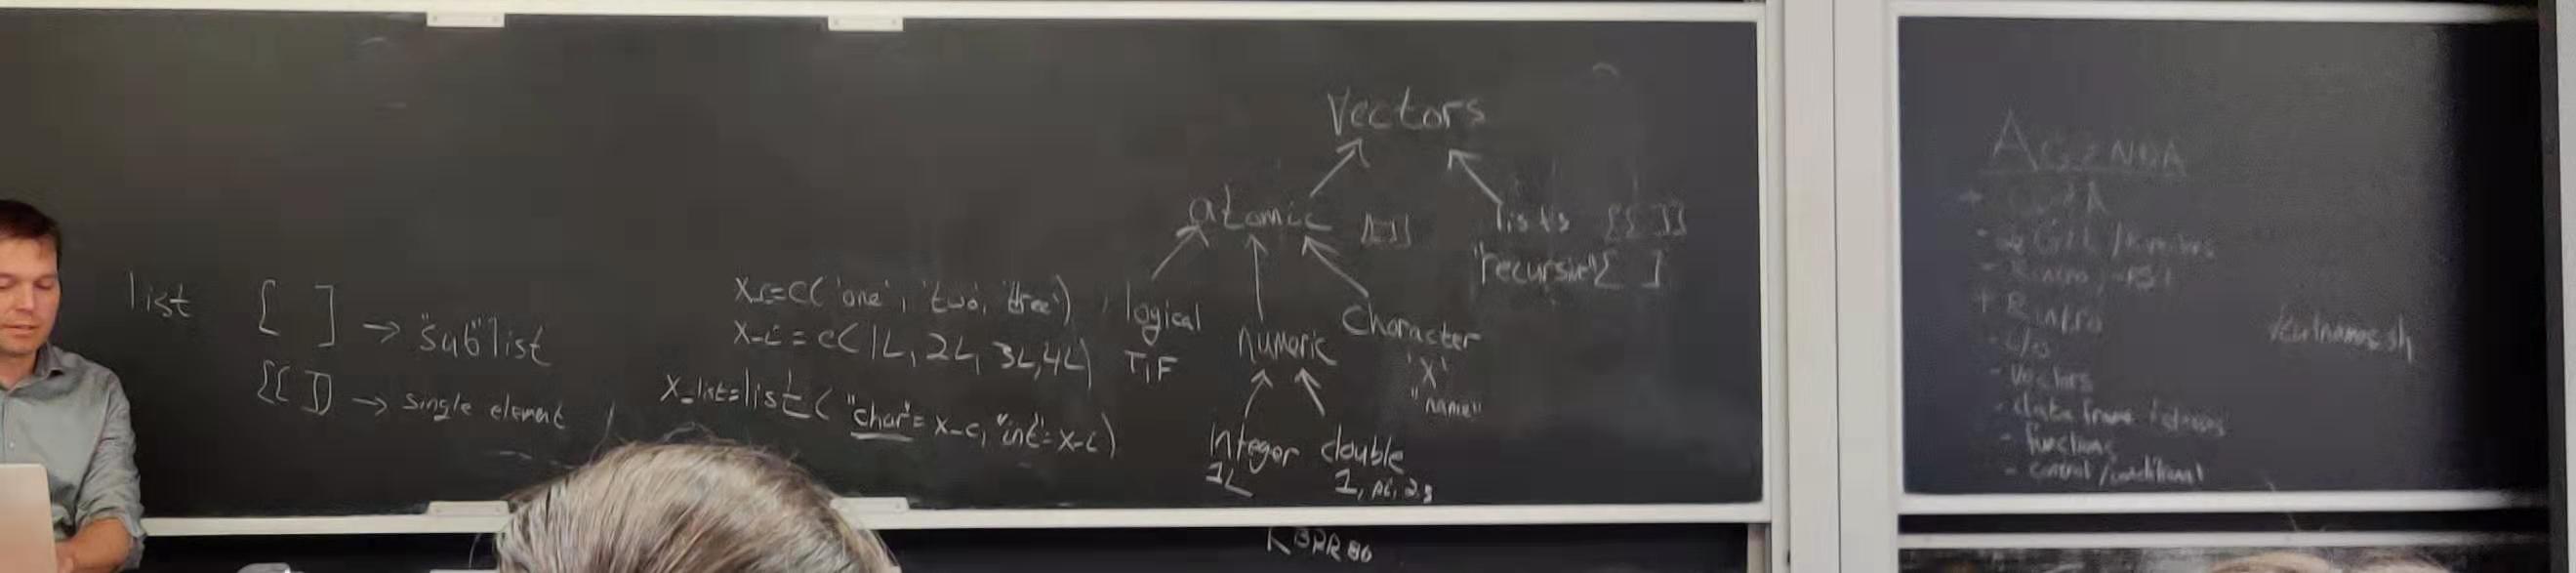 list [ ] → "sub" list
[[ ]] → single element
x_c=c('one', 'two, 'three')
x_i = c(1L, 2L, 3L, 4L)
x_list=list( "char"= x_c, "int"= x_i)
Vectors
atomic [[]]
lists [[ ]]
"recursive" [ ]
logical
T, F
numeric
character
'x'
"name"
Integer double
1L 1, pi, 2.5
AGENDA
- R intro
+ R intro
- vectors
- data frame
- functions
- control / conditional